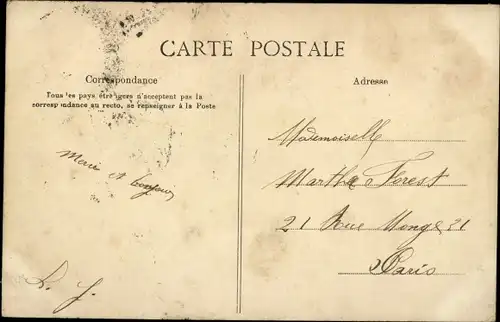 CARTE POSTALE
Correspondance
Tous les pays étrangers n'acceptent pas la
correspondance au recto, se renseigner à la Poste
Merci et bonjour
L. J.
Adresse
Mademoiselle
Marthe Forest
21 Rue Monge 21
Paris